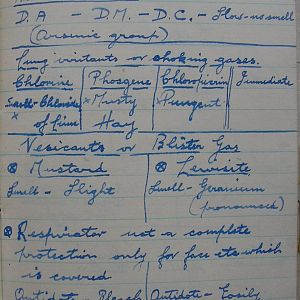 D.A - D.M. - D.C. - Slow - no smell
(Arsenic group)
Lung irritants or choking gases.
Chlorine Phosgene Chloropicrin Immediate
Smell - Chloride Musty Pungent
of lime Hay
Vesicants or Blister Gas
Mustard Lewisite
Smell - Slight Smell - Geranium
(pronounced)
Respirator not a complete
protection only for face etc which
is covered
Antidote - Bleach Antidote - Easily